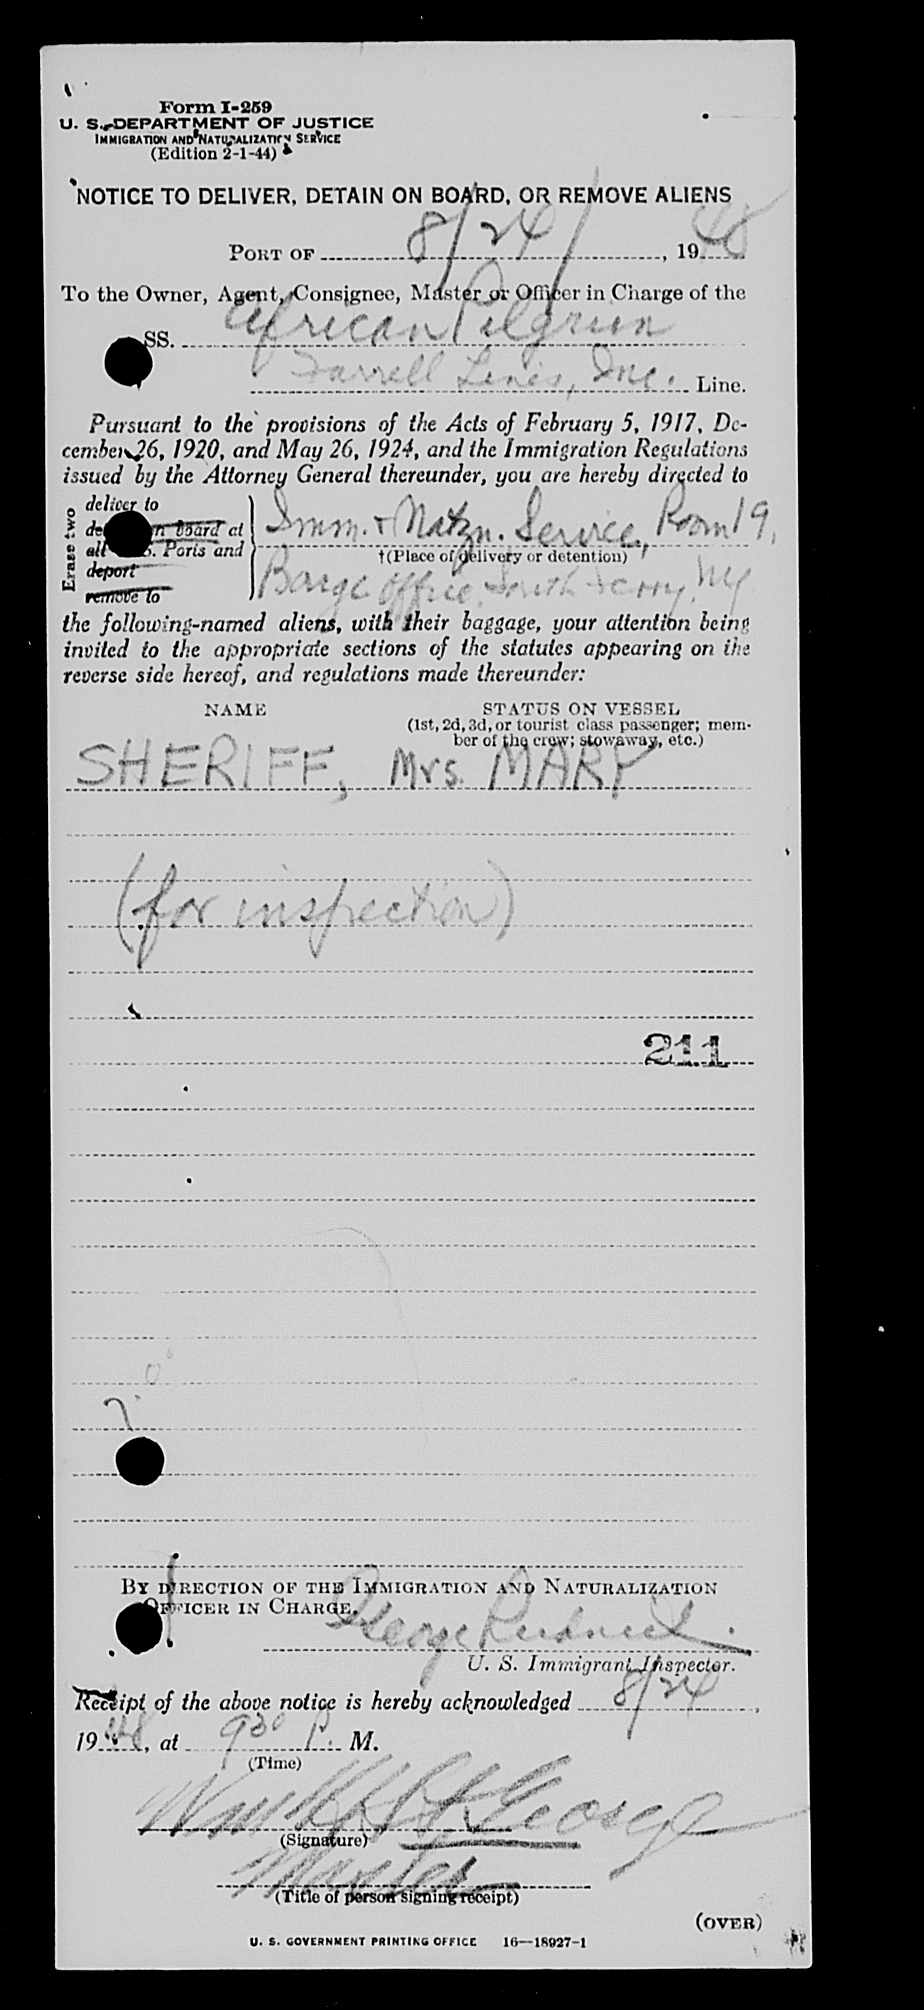 Form I-259
U. S. DEPARTMENT OF JUSTICE
IMMIGRATION AND NATURALIZATION SERVICE
(Edition 2-1-44)
NOTICE TO DELIVER, DETAIN ON BOARD, OR REMOVE ALIENS
PORT OF 8/24/, 1948
To the Owner, Agent, Consignee, Master or Officer in Charge of the
SS. African Pilgrim
Farrell Lines, Inc. Line.
Pursuant to the provisions of the Acts of February 5, 1917, De-
cember 26, 1920, and May 26, 1924, and the Immigration Regulations
issued by the Attorney General thereunder, you are hereby directed to
Erase two
deliver to
board at
all Ports and
deport
remove to
Imm. + Natzn. Service, Room 19,
†(Place of delivery or detention)
Barge Office, South Ferry, NY
the following-named aliens, with their baggage, your attention being
invited to the appropriate sections of the statutes appearing on the
reverse side hereof, and regulations made thereunder:
NAME STATUS ON VESSEL
(1st, 2d, 3d, or tourist class passenger; mem-
ber of the crew; stowaway, etc.)
SHERIFF, Mrs. MARY
(for inspection)
211
BY DIRECTION OF THE IMMIGRATION AND NATURALIZATION
OFFICER IN CHARGE.
George
U. S. Immigrant Inspector.
Receipt of the above notice is hereby acknowledged 8/24,
1948, at 930 P. M.
(Time)
Wm St George
(Signature)
Master
(Title of person signing receipt)
(OVER)
U. S. GOVERNMENT PRINTING OFFICE 16—18927-1